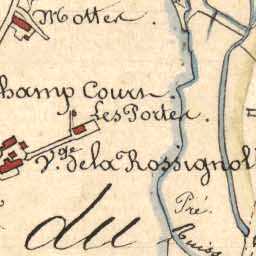 Motter
Champ Cours
Les Porter.
Vge de la Rossignol
Pré.
du